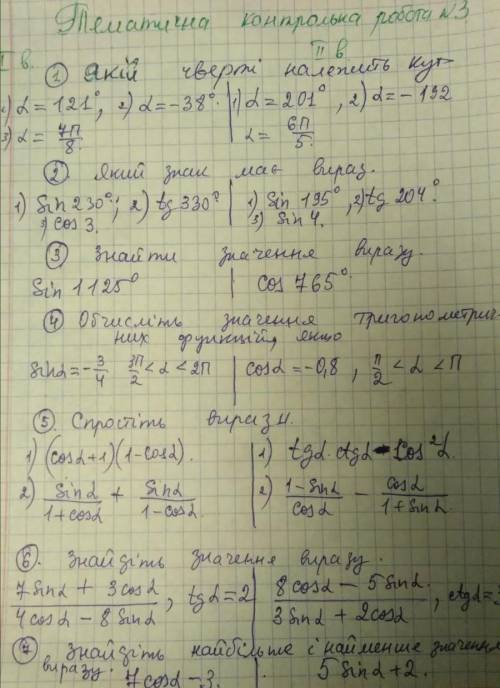 Тематична контрольна робота №3
I в. II в
① Якій чверті належить кут
1) α = 121°, 2) α = -38° | 1) α = 201°, 2) α = -192
3) α = 7π/8. | α = 6π/5.
② Який знак має вираз.
1) sin 230°; 2) tg 330° | 1) sin 195°, 2) tg 204°.
3) cos 3. | 3) sin 4.
③ Знайти значення виразу.
sin 1125° | cos 765°.
④ Обчисліть значення тригонометрич-
них функцій, якщо
sinα = -3/4 3π/2 < α < 2π | cosα = -0,8, π/2 < α < π
⑤. Спростіть вирази.
1) (cosα+1)(1-cosα). | 1) tgα · ctgα - cos²α.
2) sinα/(1+cosα) + sinα/(1-cosα) | 2) (1-sinα)/cosα - cosα/(1+sinα)
⑥. Знайдіть значення виразу.
(7sinα + 3cosα)/(4cosα - 8sinα), tgα = 2 | (8cosα - 5sinα)/(3sinα + 2cosα), ctgα =
⑦ Знайдіть найбільше і найменше значення
виразу. 7cosα - 3. 5sinα + 2.